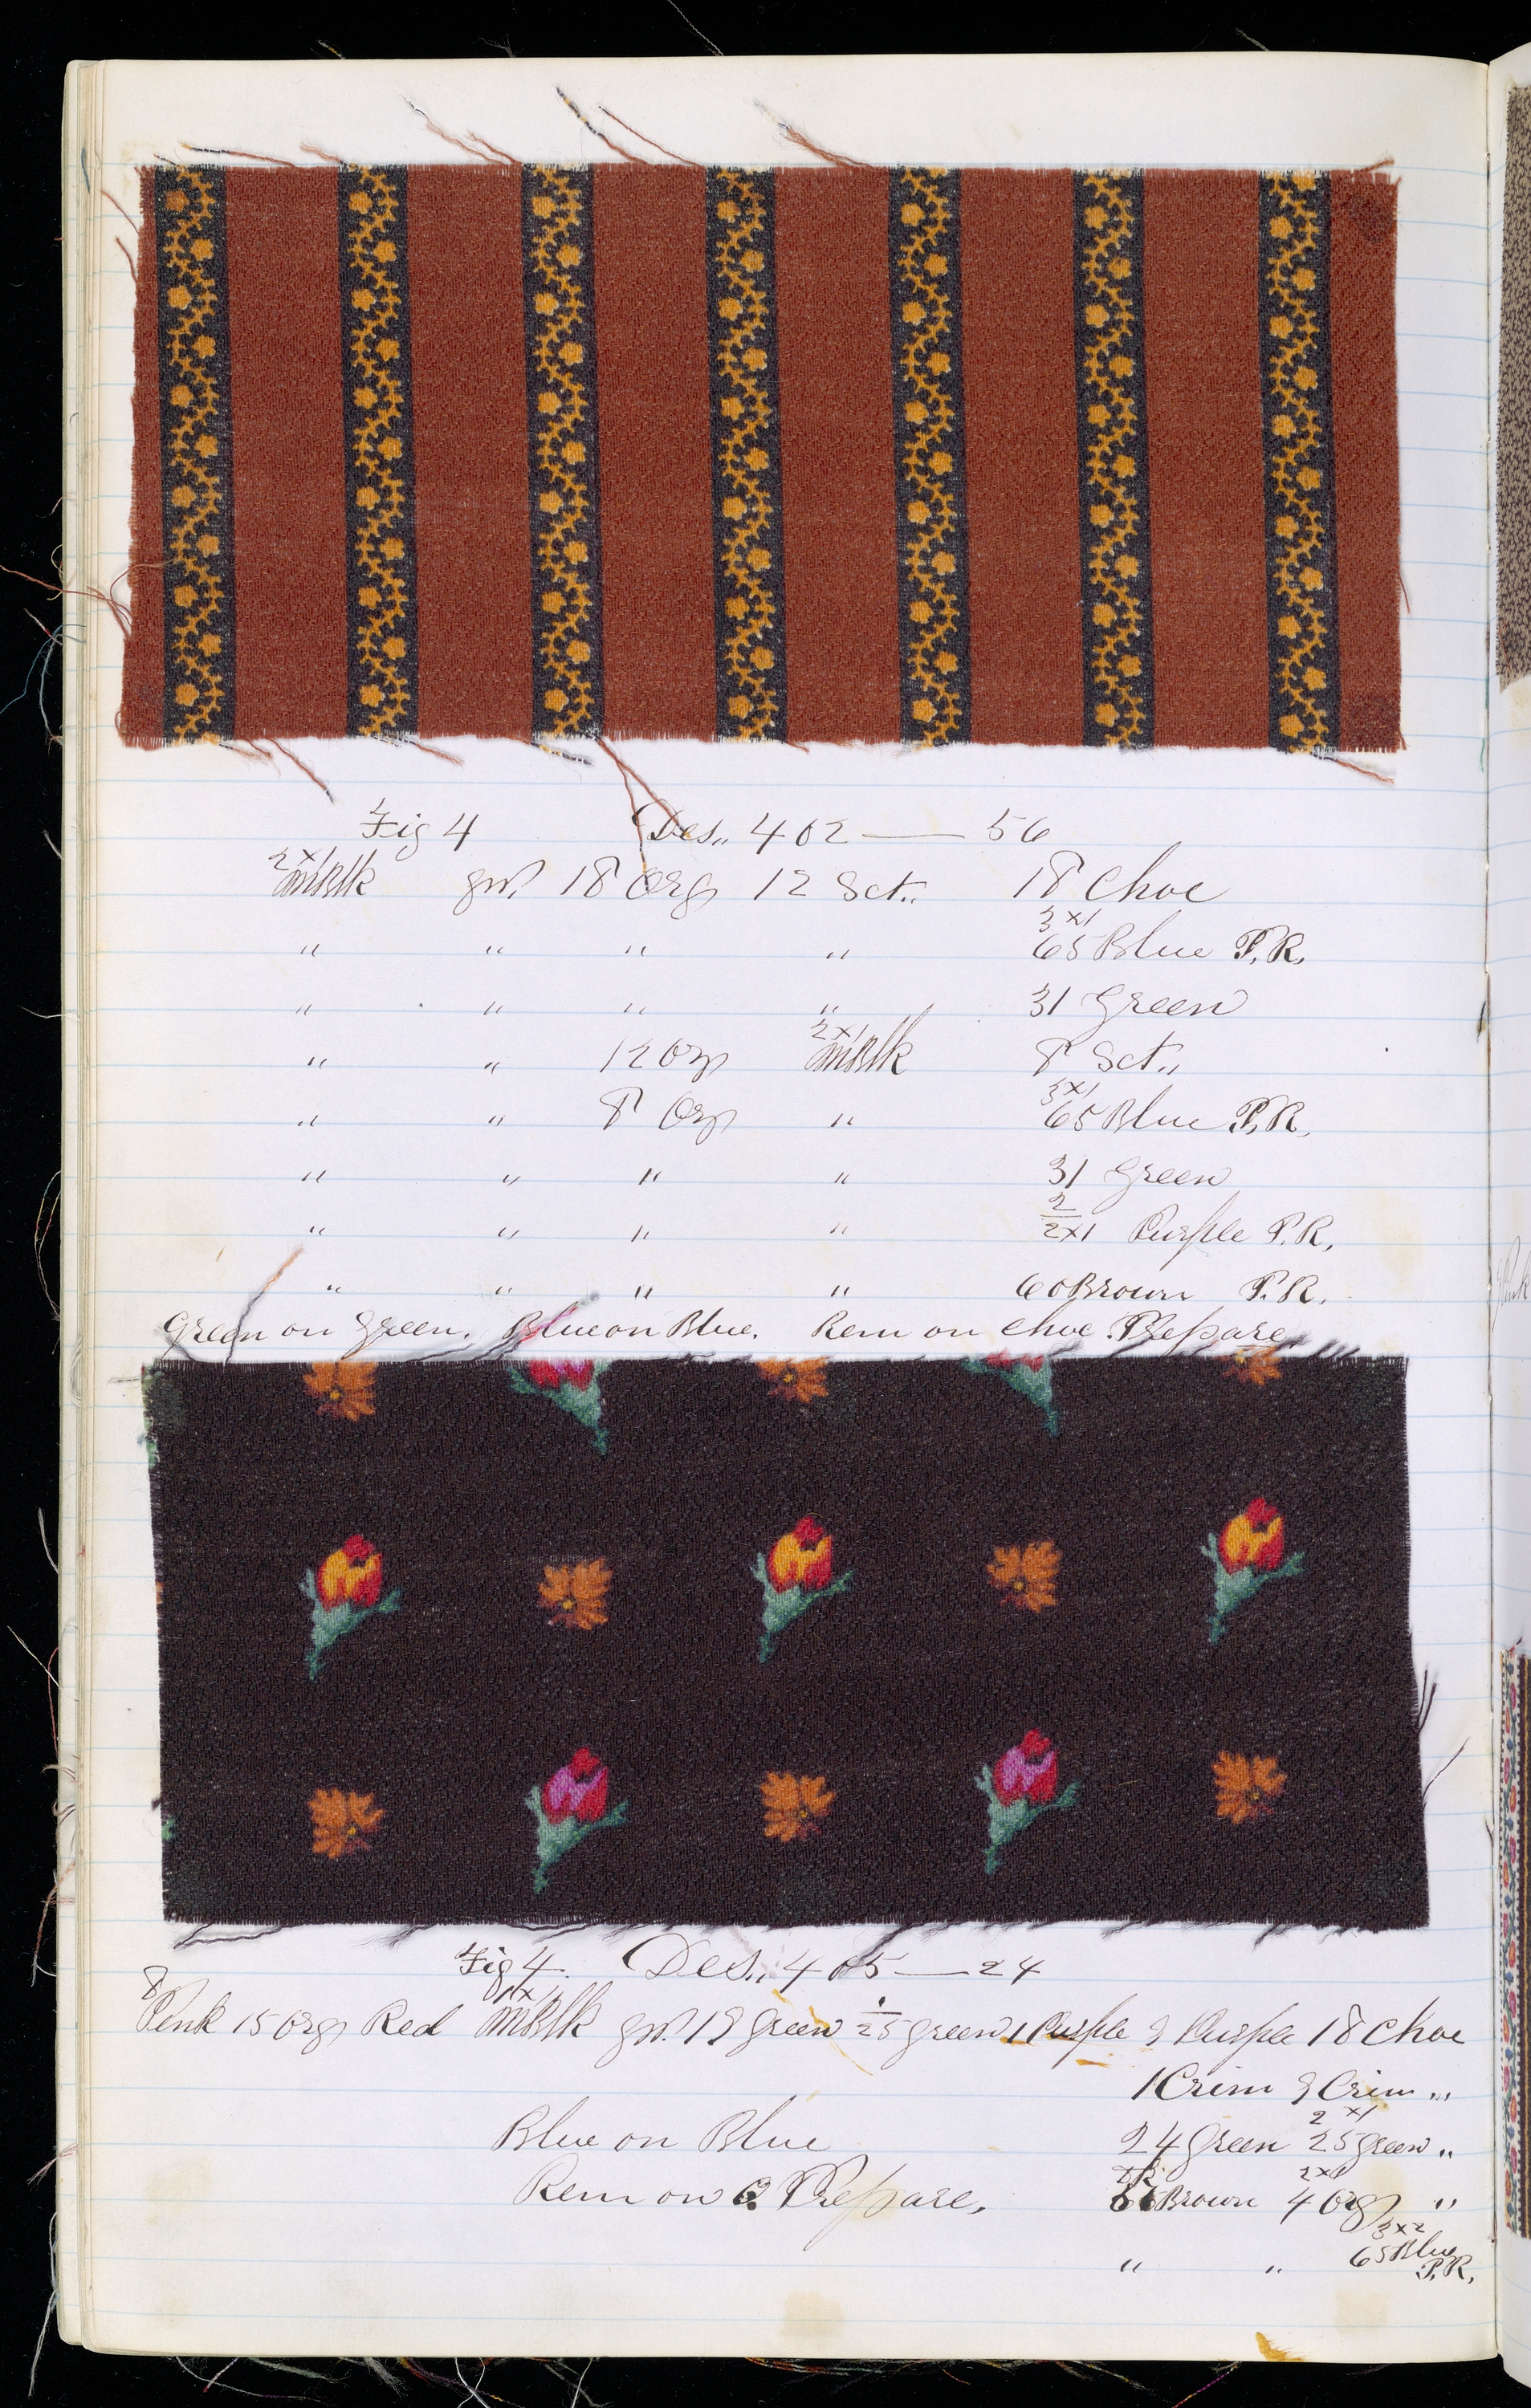 Fig 4 Des,, 402 — 56
2x1 mBlk gr. 18 Org 12 Sct,, 18 Choc
" " " " 3x1 65 Blue P.R.
" " " " 31 Green
" " 12 Org 2x1 mBlk 8 Sct,,
" " 8 Org " 3x1 65 Blue P.R.
" " " " 31 Green
" " " " 2/2x1 Purple P.R.
" " " " 60 Brown P.R.
Green on Green. Blue on Blue. Rem on Choc Prepare.
Fig 4. Des,, 405 — 24
8 Pink 15 Org Red mBlk gr. 19 Green 25 Green 1 Purple 9 Purple 18 Choc
1 Crim 9 Crim "
Blue on Blue 24 Green 2x1 25 Green "
Rem on Prepare. Brown 2x1 4 Org "
" " 3x2 65 Blue P.R.